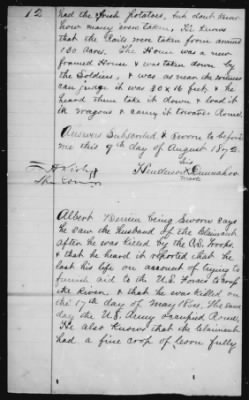 12
had the Irish potatoes, but dont know
how many were taken, He knows
that the Rails were taken from around
130 acres. The House was a new
framed House & was taken down by
the Soldiers, & was as near as witness
can judge it was 30 x 16 feet, & he
heard them take it down & load it
in wagons & carry it towards Rome,
Answers Subscribed & Sworn to before
me this 9th day of August 1872
his
Henderson
mark
Albert being Sworn says
he saw the husband of the Claimant
after he was killed by the U.S. troops
& that he heard it reported that he
lost his life on account of trying to
furnish aid to the U.S. Forces to cross
the River & that he was killed on
the 17th day of May 1864, The same
day the U.S. Army occupied Rome.
He also knows that the Claimant
had a fine crop of Corn fully